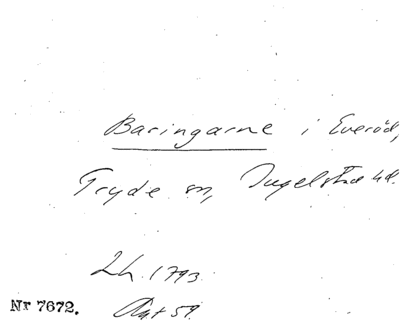 Baringarne i Everöd,
Tryde sn, Ingelstad hd.
Lh. 1793.
Nr 7672.